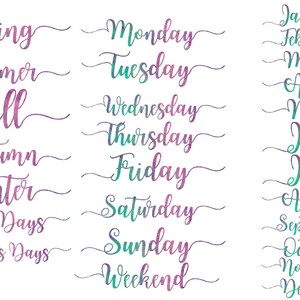 ing
mer
ll
umn
nter
Days
s Days
Monday
Tuesday
Wednesday
Thursday
Friday
Saturday
Sunday
Weekend
Ja
Feb
M
A
M
J
J
A
Sep
Oc
No
De